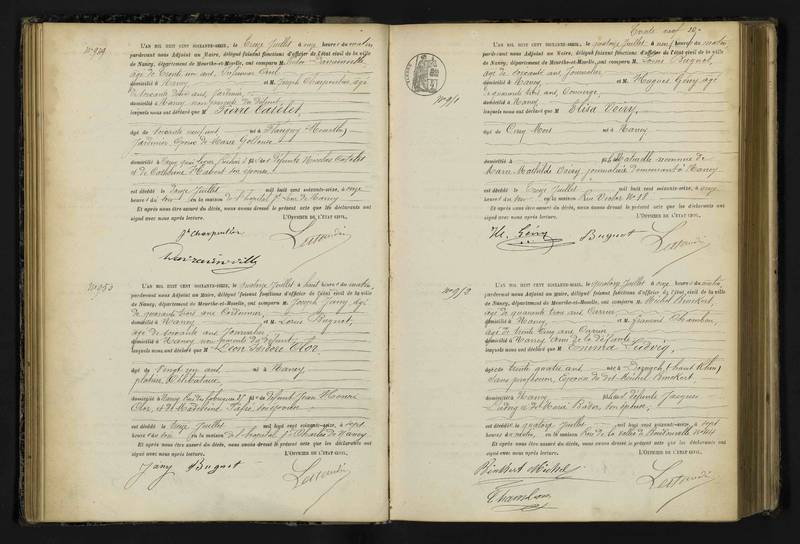 N° 949
L'AN MIL HUIT CENT SOIXANTE-SEIZE, le treize Juillet à onze heures du matin,
pardevant nous Adjoint au Maire, délégué faisant fonctions d'officier de l'état civil de la ville
de Nancy, département de Meurthe-et-Moselle, ont comparu M.
âgé de trente un ans
domicilié à Nancy et M. Joseph Charpentier, âgé
de soixante ans, Jardinier,
domicilié à Nancy, non parents du défunt
lesquels nous ont déclaré que M Pierre Catelet,
âgé de soixante neuf ans, né à Flavigny (Meurthe)
Jardinier, Epoux de Marie
domicilié à Nancy défunts Nicolas Catelet
et de Catherine Habert son épouse
est décédé le douze Juillet mil huit cent soixante-seize, à onze
heures du soir en la maison de l'hôpital St Léon de Nancy
Et après nous être assuré du décès, nous avons dressé le présent acte que les déclarants ont
signé avec nous après lecture. L'OFFICIER DE L'ÉTAT CIVIL,
Jh Charpentier
N° 950
L'AN MIL HUIT CENT SOIXANTE-SEIZE, le quatorze Juillet à huit heures du matin,
pardevant nous Adjoint au Maire, délégué faisant fonctions d'officier de l'état civil de la ville
de Nancy, département de Meurthe-et-Moselle, ont comparu M. Joseph Jany, âgé
de quarante trois ans Cordonnier,
domicilié à Nancy et M. Louis Bugnot,
âgé de soixante ans Journalier
domicilié à Nancy non parents du défunt
lesquels nous ont déclaré que M Léon Isidore Clor,
âgé de vingt un ans, né à Nancy
plâtrier, Célibataire
domicilié à Nancy Rue des fabriques 27 fils de défunt Jean
Clor, et de Madeleine son épouse
est décédé le treize Juillet mil huit cent soixante-seize, à sept
heures du soir en la maison de l'hôpital St Charles de Nancy
Et après nous être assuré du décès, nous avons dressé le présent acte que les déclarants ont
signé avec nous après lecture. L'OFFICIER DE L'ÉTAT CIVIL,
Jany Bugnot
N° 951
L'AN MIL HUIT CENT SOIXANTE-SEIZE, le quatorze Juillet à neuf heures du matin
pardevant nous Adjoint au Maire, délégué faisant fonctions d'officier de l'état civil de la ville
de Nancy, département de Meurthe-et-Moselle, ont comparu M. Louis Bugnot,
âgé de soixante ans journalier
domicilié à Nancy et M. Hugues Gény âgé
de quarante trois ans, Concierge,
domicilié à Nancy
lesquels nous ont déclaré que M Elisa Voiry,
âgé de Cinq Mois né à Nancy
domicilié à
Marie Mathilde Voiry, journalière demeurant à Nancy
est décédé le treize Juillet mil huit cent soixante-seize, à onze
heures du soir en la maison Rue Verlet N° 18
Et après nous être assuré du décès, nous avons dressé le présent acte que les déclarants ont
signé avec nous après lecture. L'OFFICIER DE L'ÉTAT CIVIL,
H. Gény Bugnot
N° 952
L'AN MIL HUIT CENT SOIXANTE-SEIZE, le quatorze Juillet à onze heures du matin,
pardevant nous Adjoint au Maire, délégué faisant fonctions d'officier de l'état civil de la ville
de Nancy, département de Meurthe-et-Moselle, ont comparu M. Michel
âgé de quarante trois ans
domicilié à Nancy, et M. François Chambon,
âgé de trente cinq ans
domicilié à Nancy, amis de la défunte
lesquels nous ont déclaré que M Emma Ludwig,
âgé de trente quatre ans née à (haut Rhin)
sans profession, Epouse de dit Michel
domicilié à Nancy fille de défunts Jacques
Ludwig et de Maria Bader son épouse,
est décédé le quatorze Juillet mil huit cent soixante-seize, à sept
heures du matin, en la maison Rue de la vallée de Boudonville
Et après nous être assuré du décès, nous avons dressé le présent acte que les déclarants ont
signé avec nous après lecture. L'OFFICIER DE L'ÉTAT CIVIL,
Michel
Chambon